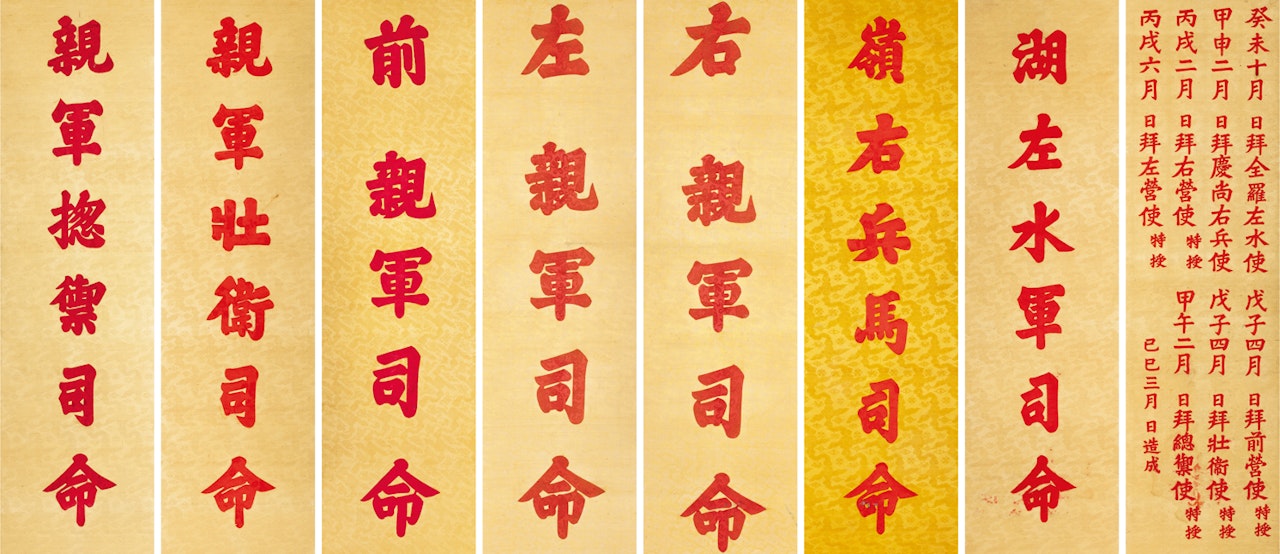 癸未十月 日拜全羅左水使
甲申二月 日拜慶尚右兵使
丙戌二月 日拜右營使 特授
丙戌六月 日拜左營使 特授
戊子四月 日拜前營使 特授
戊子四月 日拜壯衛使 特授
甲午二月 日拜總禦使 特授
己巳三月 日造成
湖左水軍司命
嶺右兵馬司命
右親軍司命
左親軍司命
前親軍司命
親軍壯衛司命
親軍捴禦司命